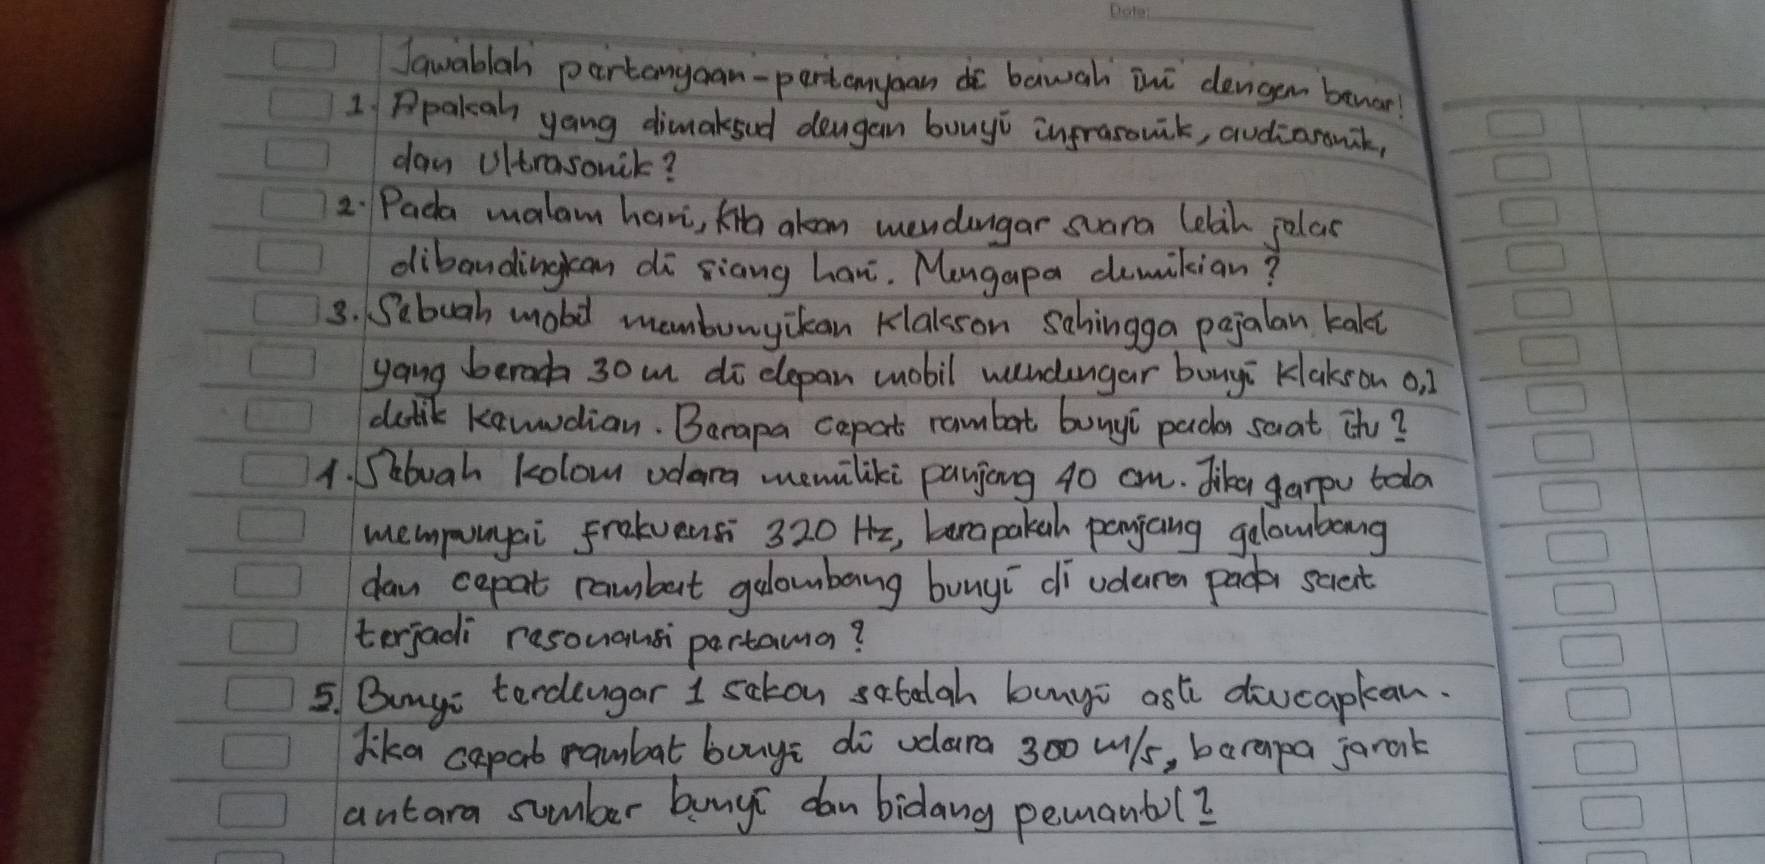 Date:
Jawablah pertanyaan-pertanyaan di bawah ini dengan benar!
1. Apakah yang dimaksud dengan bunyi infrasonik, audiosonik,
dan Ultrasonik?
2. Pada malam hari, kita akan mendengar suara lebih jelas
dibandingkan di siang hari. Mengapa demikian?
3. Sebuah mobil membunyikan klakson sehingga pejalan kaki
yang berada 30 m di depan mobil mendengar bunyi klakson 0,1
detik kemudian. Berapa cepat rambat bunyi pada saat itu?
4. Sebuah kolom udara memiliki panjang 40 cm. Jika garpu tala
mempunyai frekuensi 320 Hz, berapakah panjang gelombang
dan cepat rambat gelombang bunyi di udara pada saat
terjadi resonansi pertama?
5. Bunyi terdengar 1 sekon setelah bunyi asli diucapkan.
Jika cepat rambat bunyi di udara 300 m/s, berapa jarak
antara sumber bunyi dan bidang pemantul?